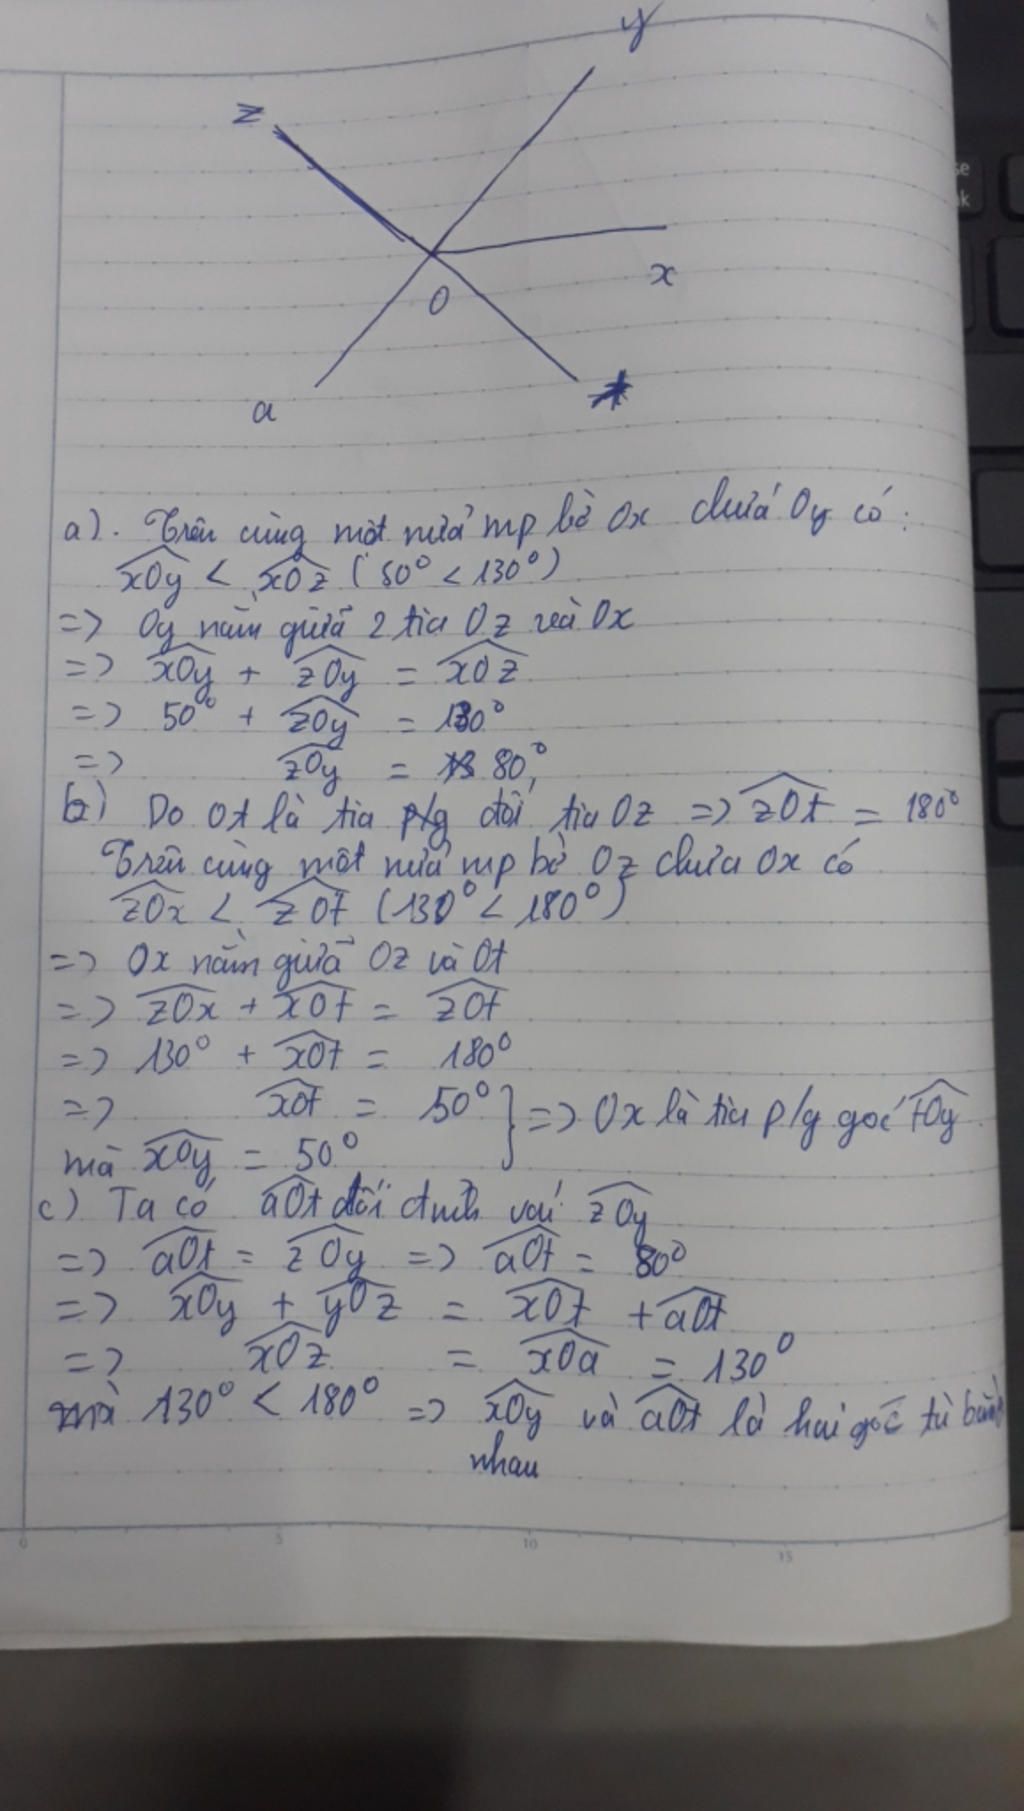 y
z
x
O
a
a). Trên cùng một nửa mp bờ Ox chứa Oy có:
xOy < xOz (50° < 130°)
=> Oy nằm giữa 2 tia Oz và Ox
=> xOy + zOy = xOz
=> 50° + zOy = 130°
=> zOy = 80°
b) Do Ot là tia đối tia Oz => zOt = 180°
Trên cùng một nửa mp bờ Oz chứa Ox có
zOx < zOt (130° < 180°)
=> Ox nằm giữa Oz và Ot
=> zOx + xOt = zOt
=> 130° + xOt = 180°
=> xOt = 50° } => Ox là tia p/g góc tOy
mà xOy = 50°
c) Ta có aOt đối đỉnh với zOy
=> aOt = zOy => aOt = 80°
=> xOy + yOz = xOt + aOt
=> xOz = xOa = 130°
mà 130° < 180° => xOy và aOt là hai góc tù bằng
nhau
se
nk
0 5 10 15